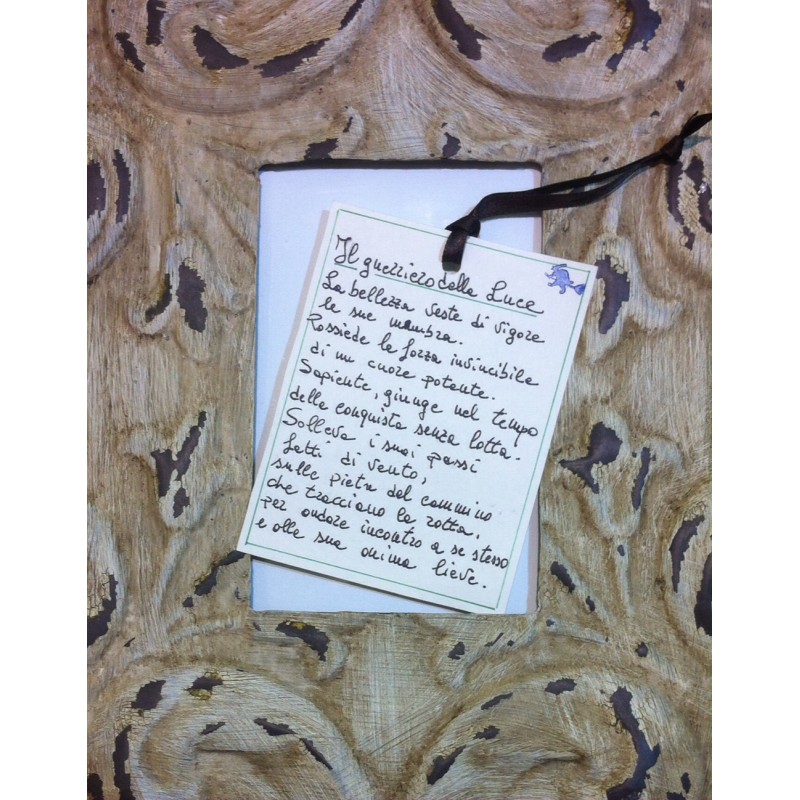 Il guerriero della Luce
La bellezza veste di vigore
le sue membra.
Possiede la forza invincibile
di un cuore potente.
Sapiente, giunge nel tempo
della conquista senza lotta.
Solleva i suoi passi
fatti di vento,
sulle pietre del cammino
che tracciano la rotta,
per andare incontro a se stesso
e alla sua anima lieve.